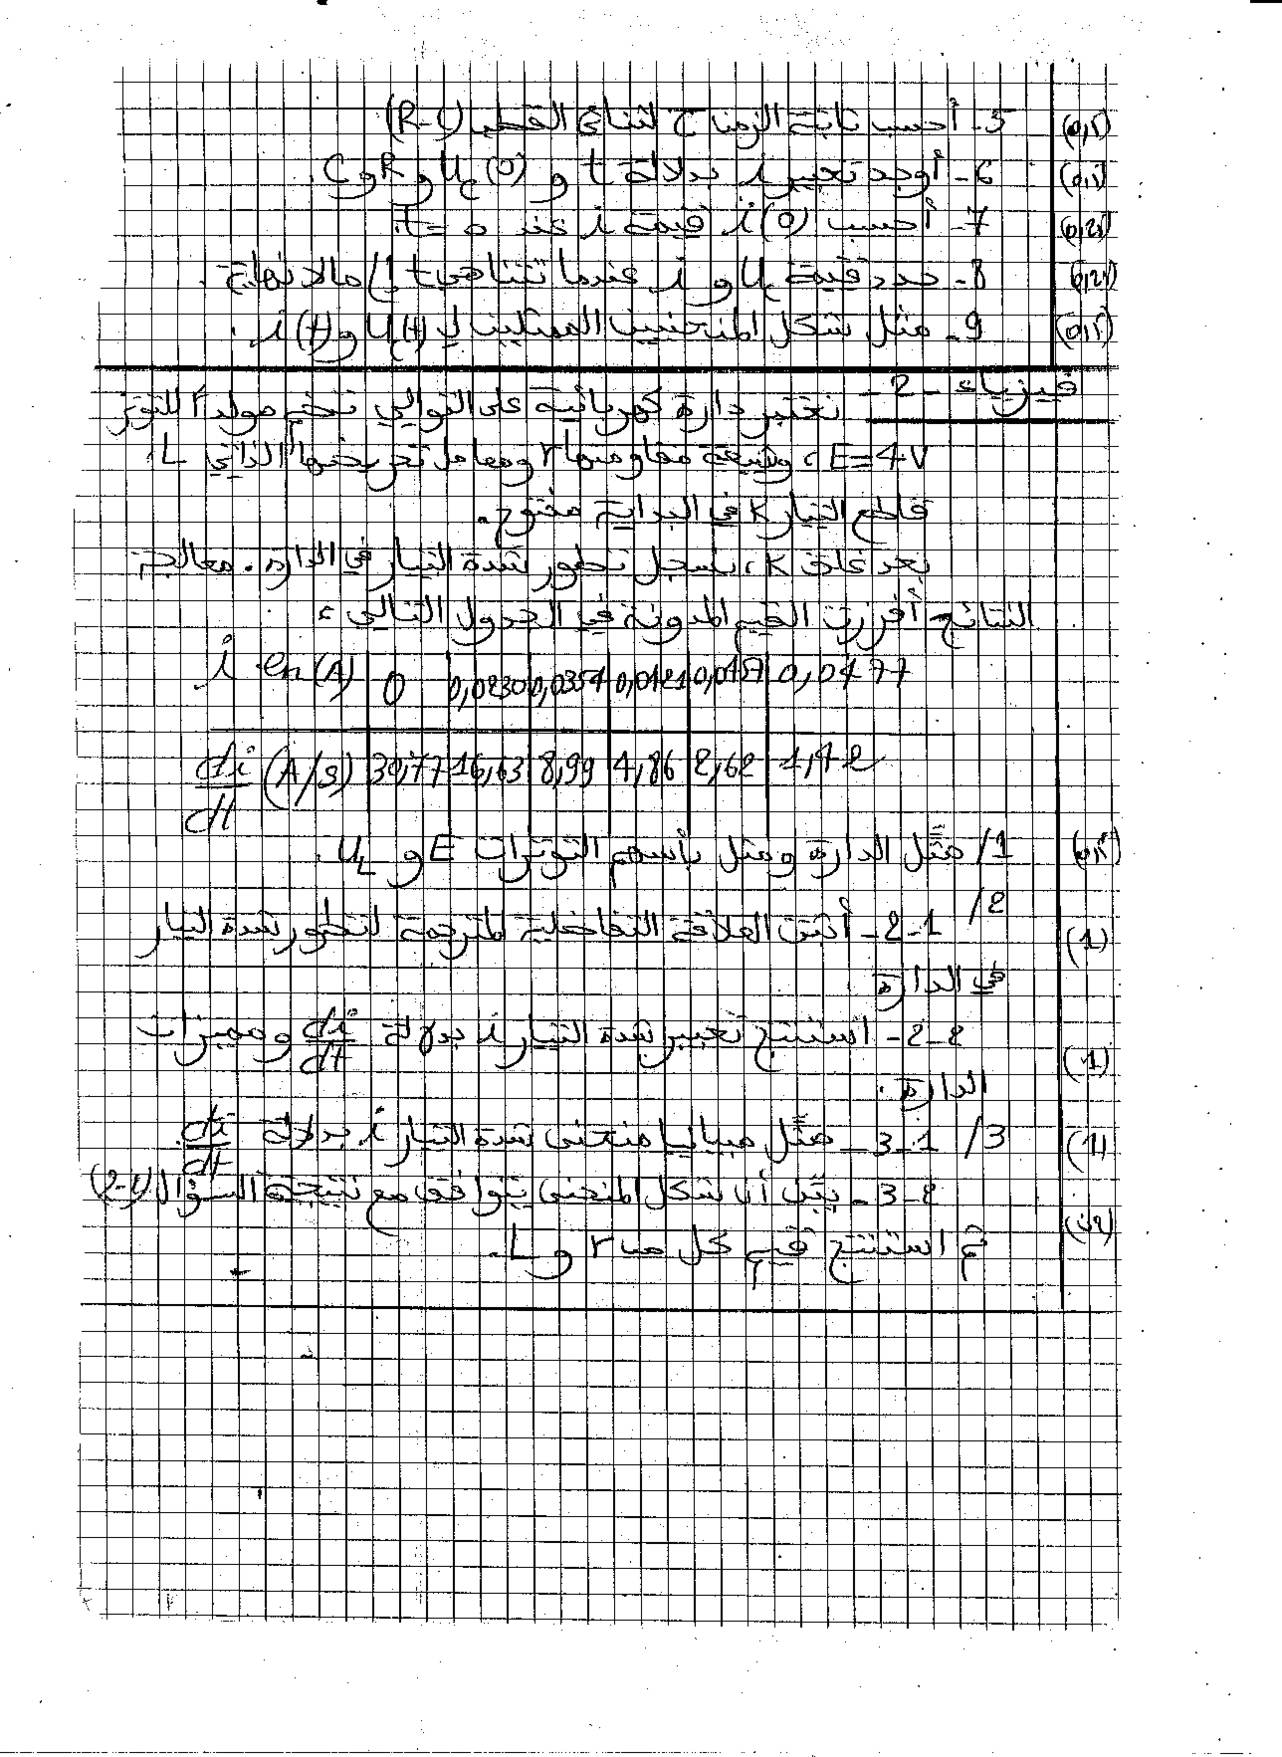 5- أحسب ثابتة الزمن τ لثنائي القطب (R-C) (0,5)
6- أوجد تعبير i بدلالة t و Uc(0) و R و C. (0,5)
7- أحسب i(0) قيمة i عند t=0. (0,25)
8- حدد قيمة Uc و i عندما تتناهى t إلى مالانهاية. (0,25)
9- مثل شكل المنحنيين الممثلين ل Uc(t) و i(t). (0,5)
فيزياء -2-
نعتبر دارة كهربائية على التوالي تضم مولد للتوتر
E=4V، وشيعة مقاومتها r ومعامل تحريضها الذاتي L،
قاطع التيار K في البداية مفتوح.
بعد غلق K، نسجل تطور شدة التيار في الدارة. معالجة
النتائج أفرزت القيم المدونة في الجدول التالي:
i en (A) 0 0,0230 0,0354 0,0421 0,0457 0,0477
di/dt (A/s) 30,77 16,63 8,99 4,86 2,62 1,42
1/ مثّل الدارة ومثل بأسهم التوترات E و UL. (0,5)
2/
2-1- أثبت العلاقة التفاضلية المترجمة لتطور شدة التيار (1)
في الدارة
2-2- استنتج تعبير شدة التيار i بدلالة di/dt ومميزات (1)
الدارة.
3/ 3-1- مثّل مبيانيا منحنى شدة التيار i بدلالة di/dt. (1)
3-2- بيّن أن شكل المنحنى يتوافق مع نتيجة السؤال (2-2)
ثم استنتج قيم كل من r و L.